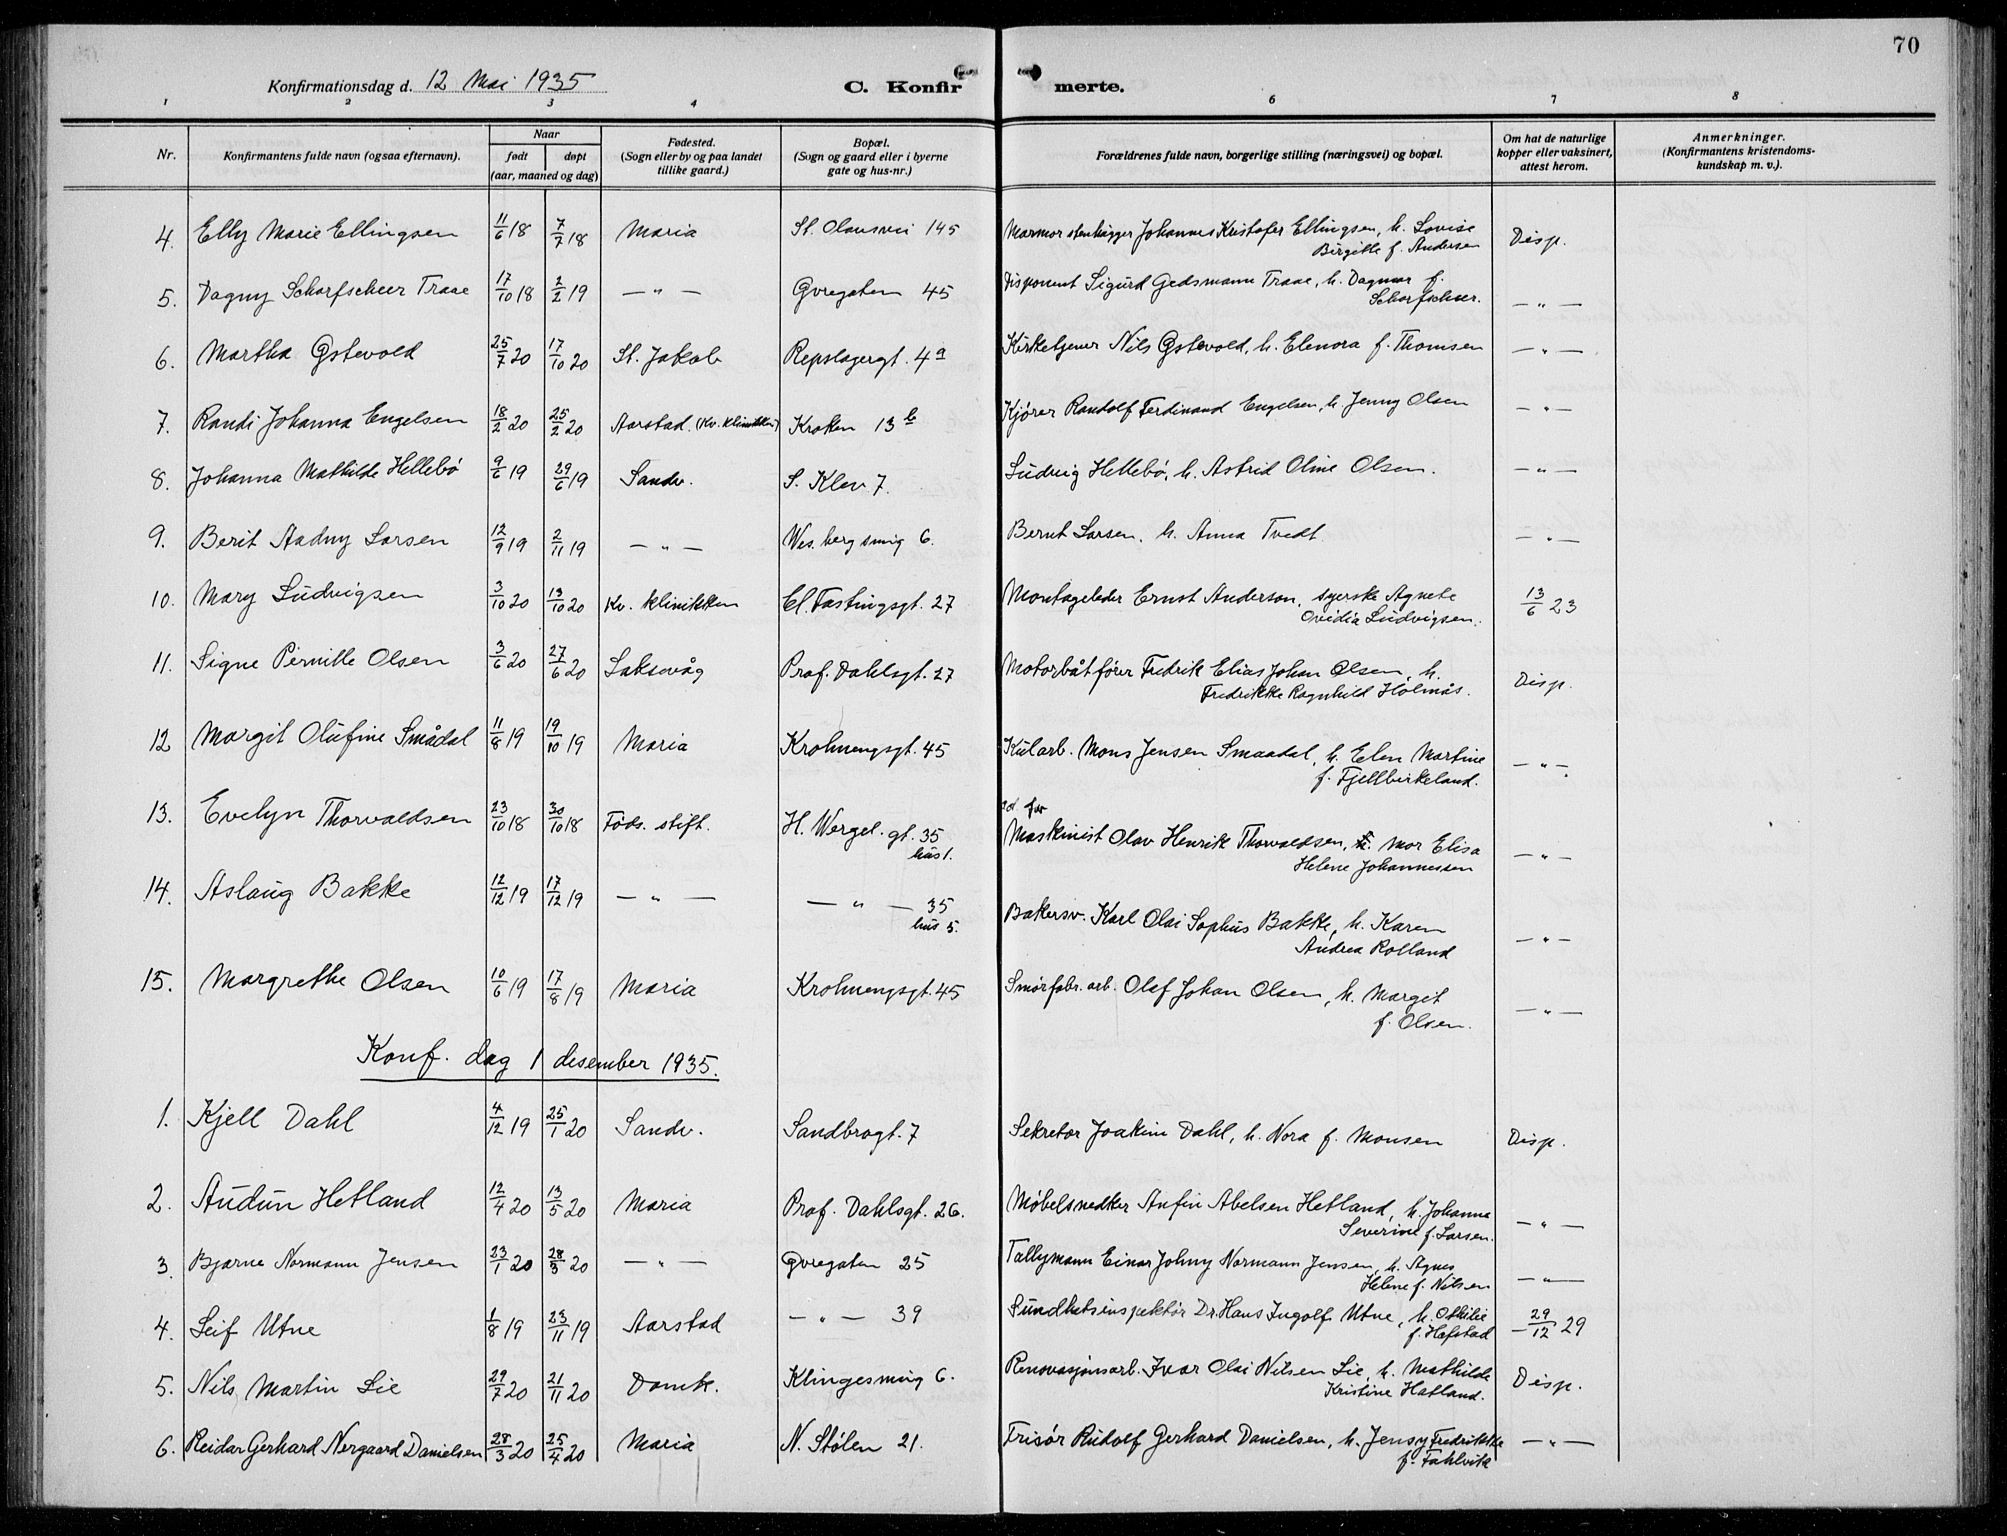 70
Konfirmationsdag d. 12 Mai 1935 C. Konfir merte.
1 2 3 4 6 7 8
Nr. Konfirmantens fulde navn (ogsaa efternavn). Naar født døpt (aar, maaned og dag) Fødested. (Sogn eller by og paa landet tillike gaard.) Bopæl. (Sogn og gaard eller i byerne gate og hus-nr.) Forældrenes fulde navn, borgerlige stilling (næringsvei) og bopæl. Om hat de naturlige kopper eller vaksinert, attest herom. Anmerkninger. (Konfirmantens kristendoms-kundskap m. v.).
4. Elly Marie Ellingsen 11/6 18 7/7 18 Maria St. Olavsvei 145 Marmorstenhugger Johannes Kristofer Ellingsen, h. Lovise Disp.
Birgitte f. Andersen
5. Dagny Scharfscheer Traae 17/10 18 2/2 19 — " — Øvregaten 45 Disponent Sigurd Gedsmann Traae, h. Dagmar f. — " —
Scharfscheer.
6. Martha Gstevold 25/7 20 17/10 20 St. Jakob Repslagergt. 4a Kirketjener Nils Gstevold, h. Elenora f. Thomsen — " —
7. Randi Johanna Engelsen 18/2 20 25/2 20 Aarstad. (Kv. klinikken) Kroken 13b Kjører Randolf Ferdinand Engelsen, h. Jenny Olsen — " —
8. Johanna Mathilde Hellebö 9/6 19 29/6 19 Sandv. S. Klev 7. Ludvig Hellebö, h. Astrid Oline Olsen. — " —
9. Berit Aadny Larsen 12/9 19 2/11 19 — " — Wes. berg smug 6. Bernt Larsen, h. Anna Tvedt — " —
10. Mary Ludvigsen 3/10 20 13/10 20 Kv. klinikken Cl. Fastingsgt. 27 Montageleder Ernst Anderson, syerske Agnete 13/6 23
Ovidia Ludvigsen.
11. Signe Pernille Olsen 3/6 20 27/6 20 Laksevåg Prof. Dahlsgt. 27 Motorbåtfører Fredrik Elias Johan Olsen, h. Disp.
Fredrikke Ragnhild Holmås.
12 Margit Olufine Smådal 11/8 19 19/10 19 Maria Krohnengsgt. 45 Kularb. Mons Jensen Smaadal, h. Elen Martine — " —
f. Fjellbirkeland.
13. Evelyn Thorvaldsen 23/10 18 30/10 18 Føds. stift. H. Wergel. gt. 35 hus 1. far Maskinist Olav Henrik Thorvaldsen, mor Elisa — " —
Helene Johannessen
14. Aslaug Bakke 12/12 19 17/12 19 — " — — " — 35 hus 5. Bakersv. Karl Olai Sophus Bakke, h. Karen — " —
Andrea Rolland
15. Margrethe Olsen 10/6 19 17/8 19 Maria Krohnengsgt. 45 Smörfabr. arb. Olaf Johan Olsen, h. Margit — " —
f. Olsen.
Konf. dag 1 desember 1935.
1. Kjell Dahl 4/12 19 25/1 20 Sandv. Sandbrogt. 7 Sekretær Joakim Dahl, h. Nora f. Monsen Disp.
2. Audun Hetland 12/4 20 13/5 20 Maria Prof. Dahlsgt. 26. Møbelsnedker Anfin Abelsen Hetland, h. Johanna — " —
Severine f. Larsen.
3. Bjarne Normann Jensen 23/1 20 28/3 20 — " — Øvregaten 25 Tallymann Einar Johny Normann Jensen, h. Agnes — " —
Helene f. Nilsen
4. Leif Utne 1/8 19 23/11 19 Aarstad — " — 39 Sundhetsinspektör Dr. Hans Ingolf Utne, h. Othilie 29/12 29
f. Hafstad
5. Nils Martin Lie 29/7 20 21/11 20 Domk. Klingesmug 6. Renovasjonsarb. Ivar Olai Nilsen Lie, h. Mathilde Disp.
Kristine Hatland.
6. Reidar Gerhard Nergaard Danielsen 28/3 20 25/4 20 Maria N. Stølen 21. Frisör Rudolf Gerhard Danielsen, h. Jensy Fredrikke — " —
f. Fahlvik